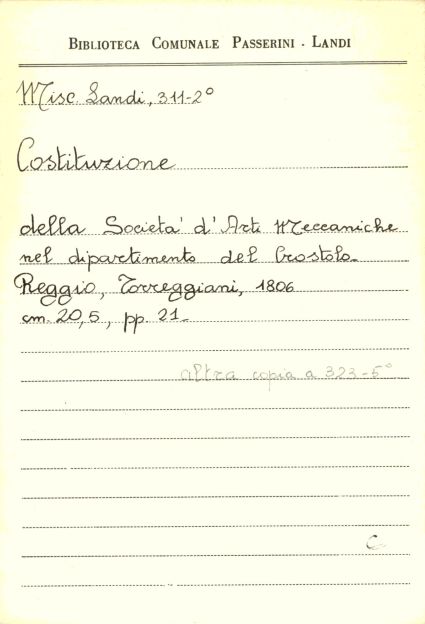 BIBLIOTECA COMUNALE PASSERINI - LANDI
Misc. Landi, 311-2°
Costituzione
della Societa' d'Arti Meccaniche
nel dipartimento del Crostolo_
Reggio, Torreggiani, 1806
cm. 20,5, pp. 21_
altra copia a 323-5°
C